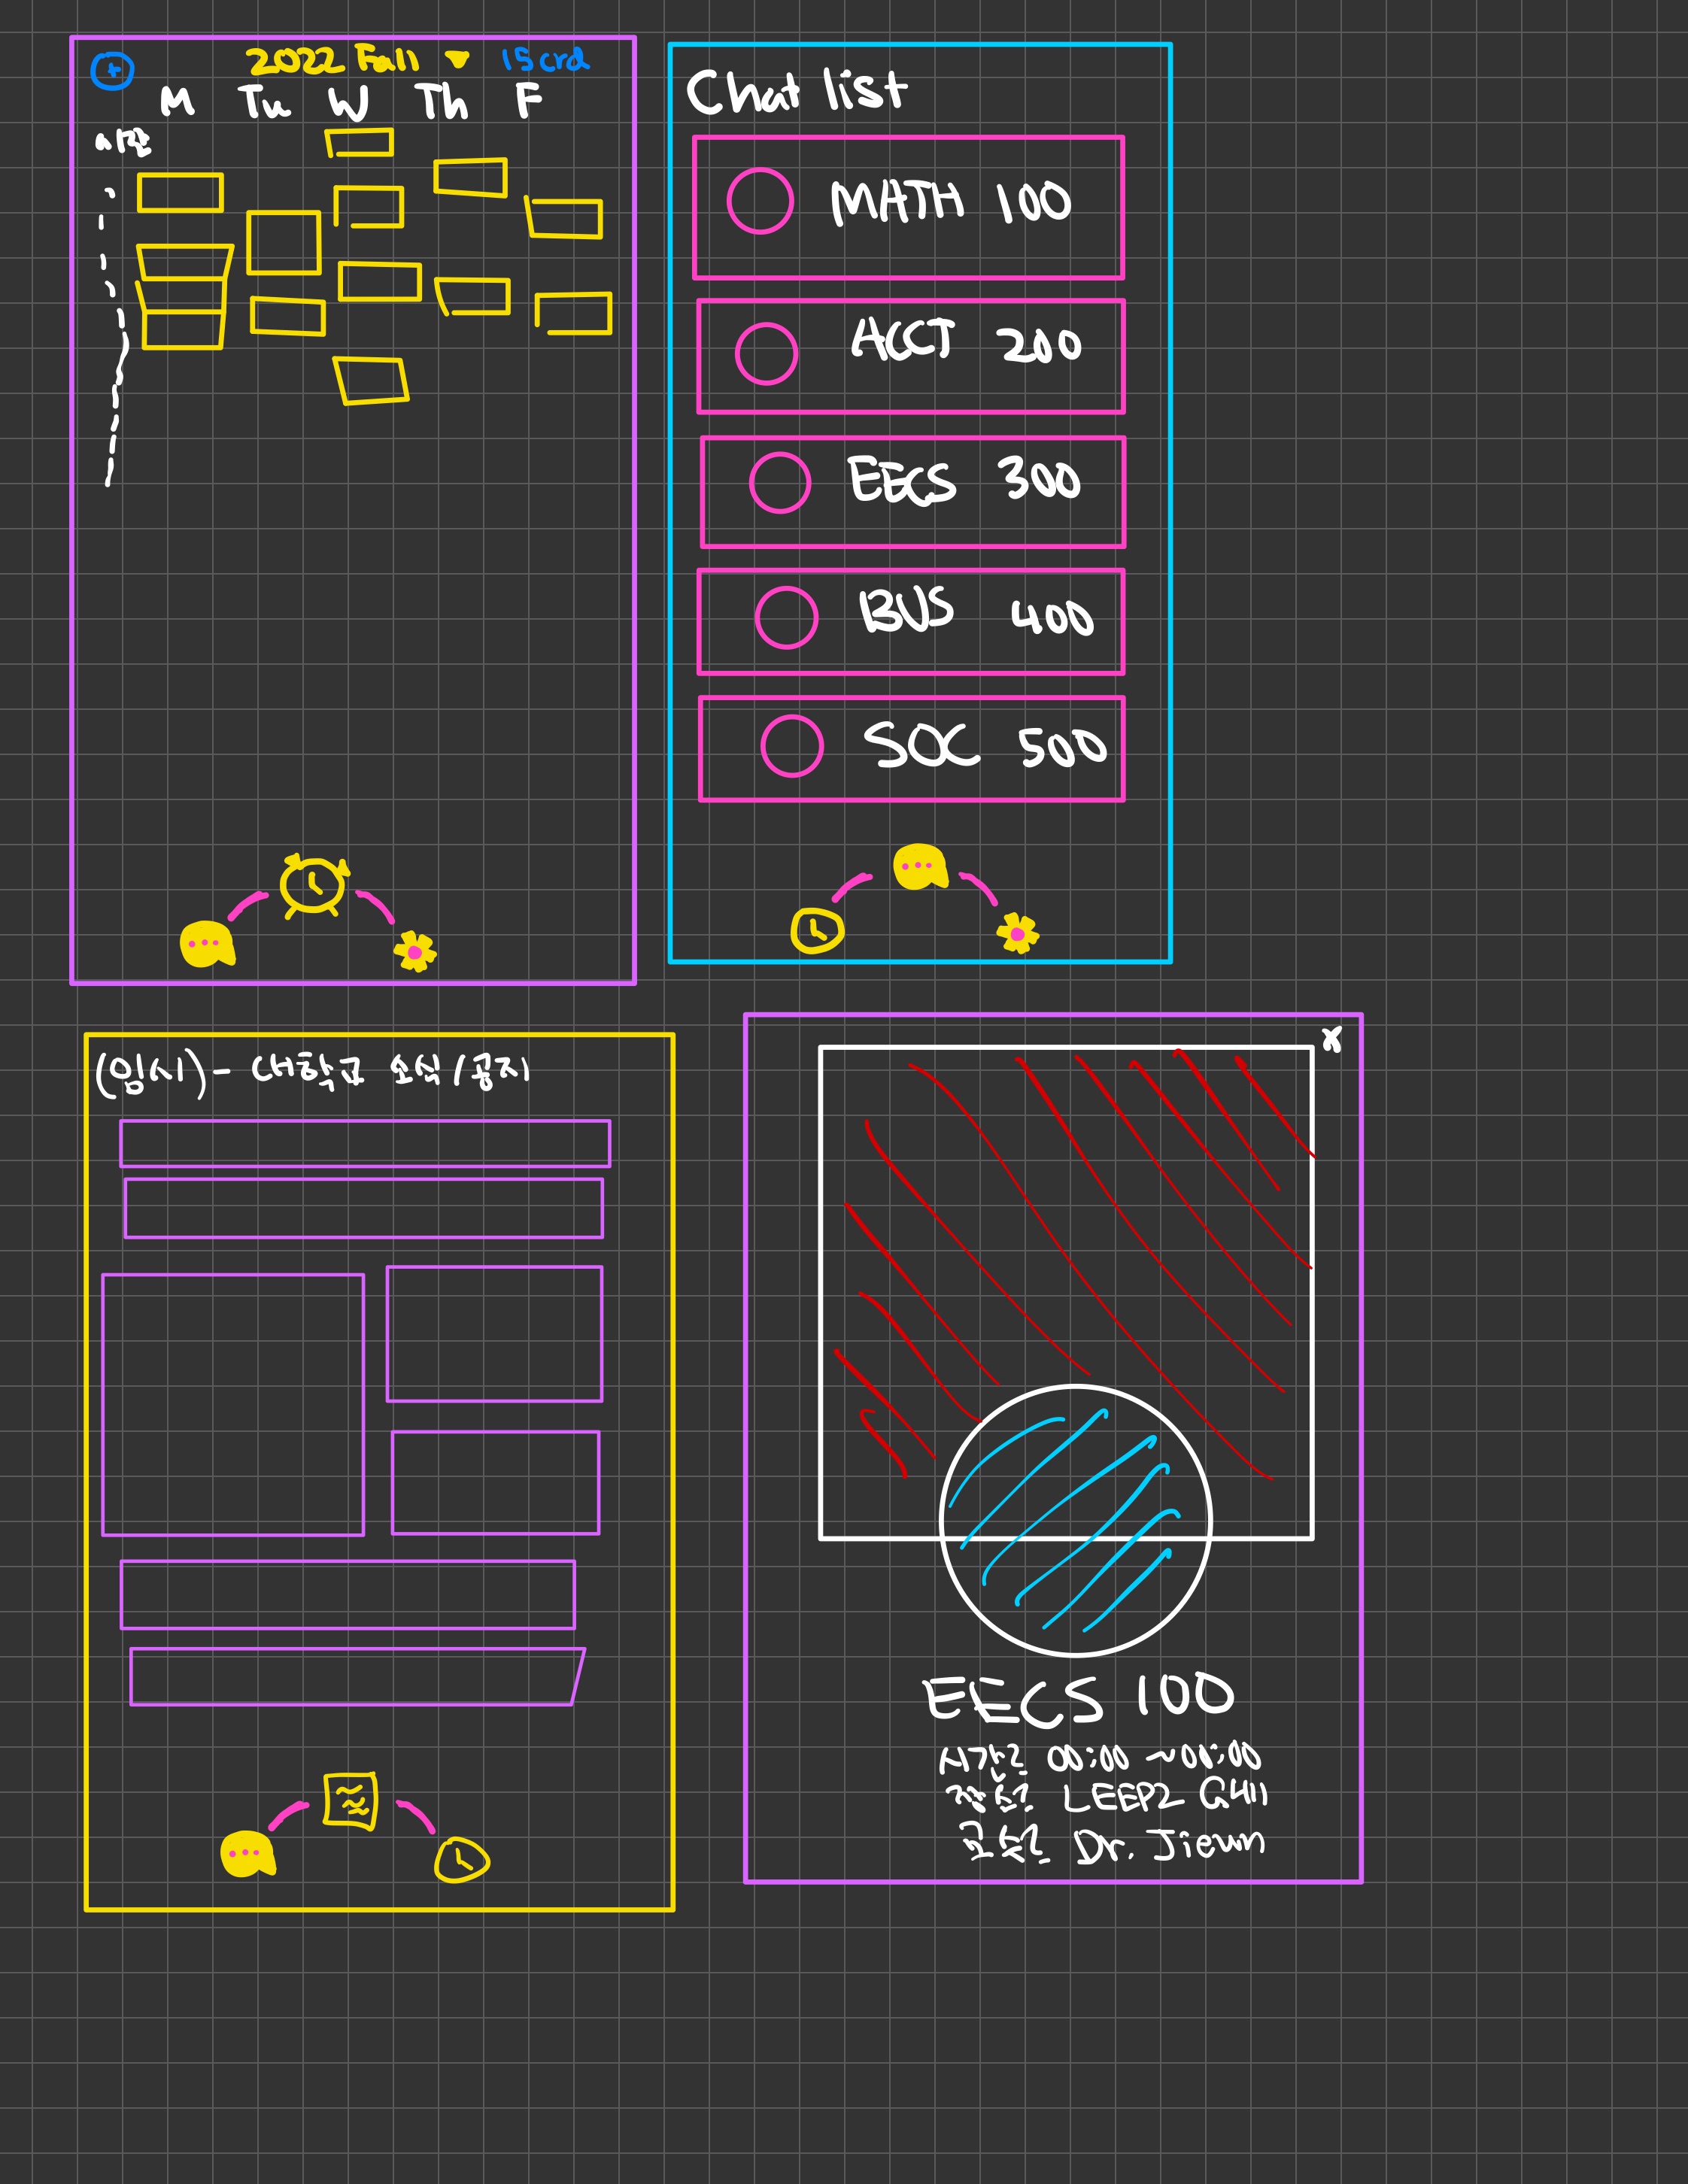 2022 Fall 15crd
M Tu W Th F
Chat list
MATH 100
ACCT 200
EECS 300
BUS 400
SOC 500
(임시) - 대학교 소식/공지
x
EECS 100
시간: 00:00 ~ 00:00
LEEP2 G411
교수: Dr. Jieun